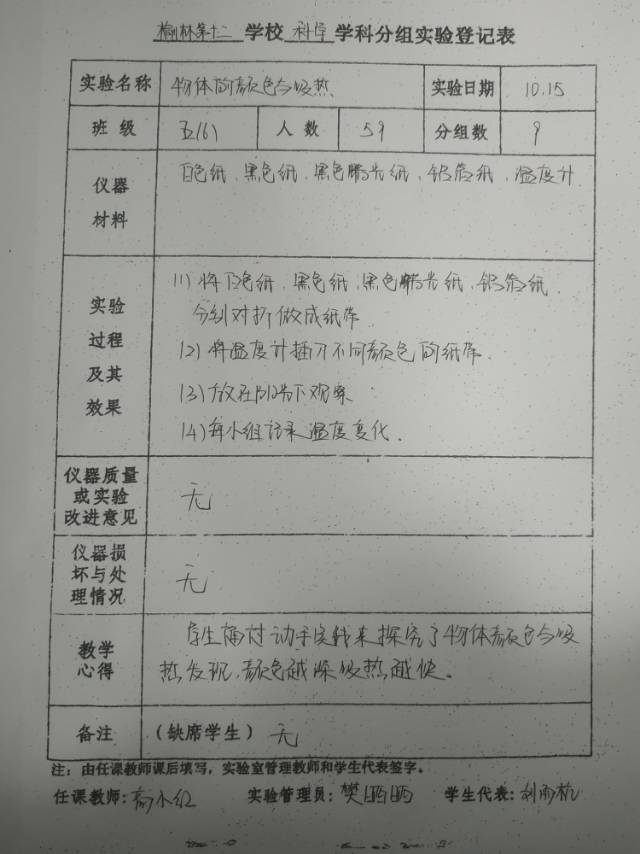 榆林第十二 学校 科学 学科分组实验登记表
实验名称 物体的颜色与吸热 实验日期 10.15
班级 五(6) 人数 59 分组数 9
仪器材料 白色纸、黑色纸、黑色蜡光纸、铝箔纸、温度计
实验过程及其效果
(1) 将白色纸、黑色纸、黑色蜡光纸、铝箔纸
分别对折做成纸袋
(2) 将温度计插入不同颜色的纸袋.
(3) 放在阳光下观察
(4) 每小组记录温度变化.
仪器质量或实验改进意见 无
仪器损坏与处理情况 无
教学心得 学生通过动手实践来探究了物体颜色与吸
热发现,颜色越深吸热越快。
备注 (缺席学生) 无
注:由任课教师课后填写,实验室管理教师和学生代表签字。
任课教师:高小红 实验管理员:樊 学生代表:刘雨杭